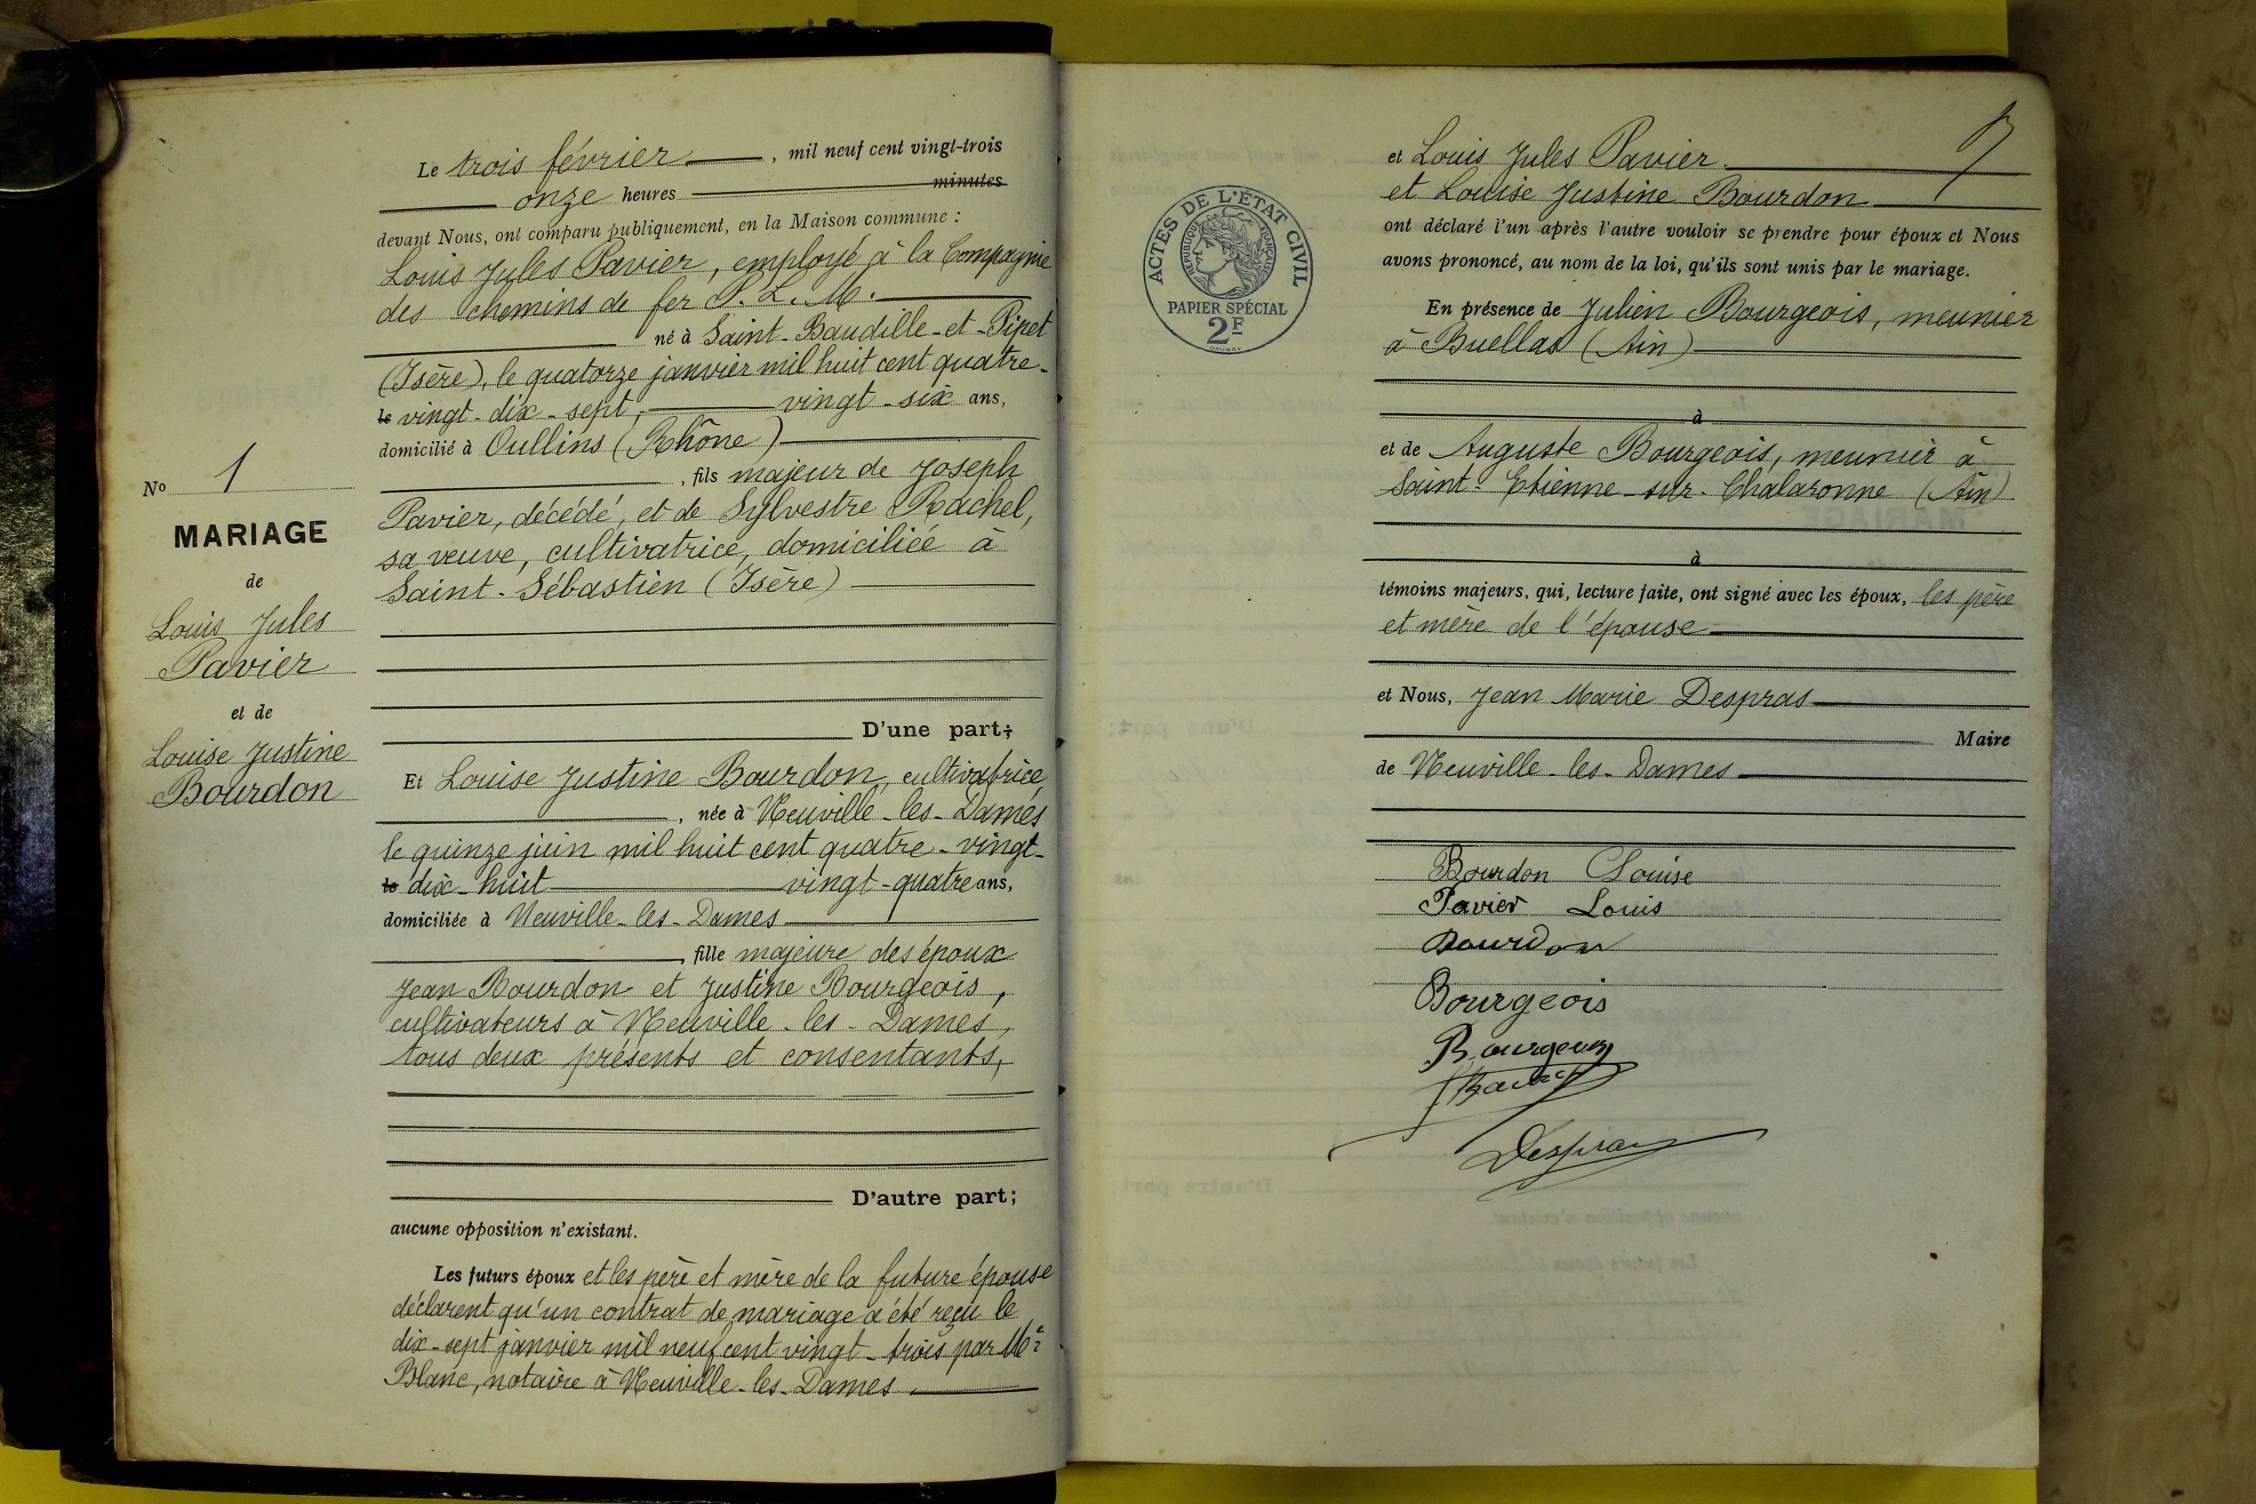 No 1
MARIAGE
de
Louis Jules
Pavier
et de
Louise Justine
Bourdon
Le trois février, mil neuf cent vingt-trois
onze heures minutes
devant Nous, ont comparu publiquement, en la Maison commune :
Louis Jules Pavier, employé à la Compagnie
des chemins de fer P. L. M.
né à Saint-Baudille-et-Pipet
(Isère), le quatorze janvier mil huit cent quatre-
le vingt-dix-sept, vingt-six ans,
domicilié à Oullins (Rhône)
, fils majeur de Joseph
Pavier, décédé, et de Sylvestre Rachel,
sa veuve, cultivatrice, domiciliée à
Saint-Sébastien (Isère)
D'une part;
Et Louise Justine Bourdon, cultivatrice,
, née à Neuville-les-Dames
le quinze juin mil huit cent quatre-vingt-
le dix-huit vingt-quatre ans,
domiciliée à Neuville-les-Dames
, fille majeure des époux
Jean Bourdon et Justine Bourgeois,
cultivateurs à Neuville-les-Dames,
tous deux présents et consentants,
D'autre part;
aucune opposition n'existant.
Les futurs époux et les père et mère de la future épouse
déclarent qu'un contrat de mariage a été reçu le
dix-sept janvier mil neuf cent vingt-trois par Me
Blanc, notaire à Neuville-les-Dames.
ACTES DE L'ÉTAT CIVIL
RÉPUBLIQUE FRANÇAISE
PAPIER SPÉCIAL
2F
et Louis Jules Pavier
et Louise Justine Bourdon
ont déclaré l'un après l'autre vouloir se prendre pour époux et Nous
avons prononcé, au nom de la loi, qu'ils sont unis par le mariage.
En présence de Julien Bourgeois, meunier
à Buellas (Ain)
à
et de Auguste Bourgeois, meunier à
Saint-Etienne-sur-Chalaronne (Ain)
à
témoins majeurs, qui, lecture faite, ont signé avec les époux, les père
et mère de l'épouse
et Nous, Jean Marie Despras
Maire
de Neuville-les-Dames
Bourdon Louise
Pavier Louis
Bourdon
Bourgeois
Bourgeois
Despras